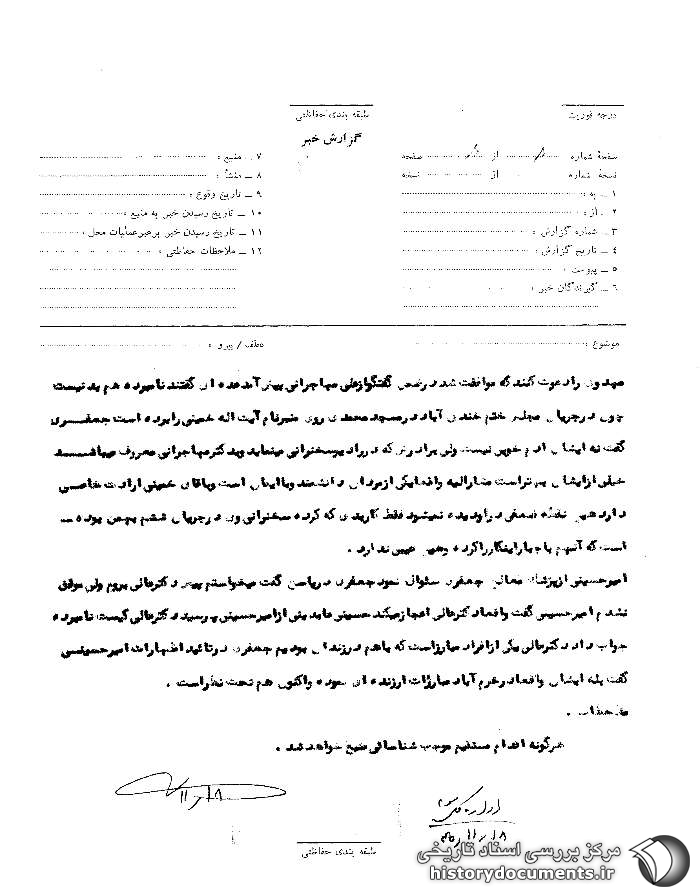 درجه فوریت
طبقه بندی حفاظتی
گزارش خبر
صفحهٔ شماره از صفحه
نسخهٔ شماره از نسخه
۱ ـ به :
۲ ـ از :
۳ ـ شماره گزارش :
۴ ـ تاریخ گزارش :
۵ ـ پیوست :
۶ ـ گیرندگان خبر :
۷ ـ منبع :
۸ ـ منشأ :
۹ ـ تاریخ وقوع :
۱۰ ـ تاریخ رسیدن خبر به منبع :
۱۱ ـ تاریخ رسیدن خبر برهبر عملیات محل :
۱۲ ـ ملاحظات حفاظتی :
موضوع :
عطف / پیرو :
را دعوت کنند که موافقت شد در ضمن گفتگو از علی مهاجرانی پیش آمد عده ای گفتند نامبرده هم بد نیست
چون در جریان مجلس ختم خندق آباد در مسجد محمدی روی منبر نام آیت اله خمینی را برده است جعفری
گفت نه ایشان آدم خوبی نیست ولی برادرش که در رادیو سخنرانی مینماید و بدکتر مهاجرانی معروف میباشد
خیلی از ایشان بهتر است مشارالیه واقعا یکی از مردان دانشمند و با ایمان است و باقای خمینی ارادت خاصی
دارد هیچ نقطه ضعفی در او دیده نمیشود فقط کار بدی که کرده سخنرانی وی در جریان ششم بهمن بوده
است که آنهم با جبار اینکار را کرده و هیچ عیبی ندارد .
امیرحسینی از پزشک معالج جعفری سئوال نمود جعفری در پاسخ گفت میخواستم پیش دکتر عالی بروم ولی موفق
نشدم امیرحسینی گفت واقعا دکتر عالی اعجاز میکند حسینی عابدینی از امیرحسینی پرسید دکتر عالی کیست نامبرده
جواب داد دکتر عالی یکی از افراد مبارز است که با هم در زندان بودیم جعفری در تائید اظهارات امیرحسینی
گفت بله ایشان واقعا در خرم آباد مبارزات ارزنده ای نموده و اکنون هم تحت نظر است .
ملاحظات .
هرگونه اقدام مستقیم موجب شناسائی منبع خواهد شد .
۱۱/۸
اداره کل سوم
۱۱/۸
طبقه بندی حفاظتی
مرکز بررسی اسناد تاریخی
historydocuments.ir